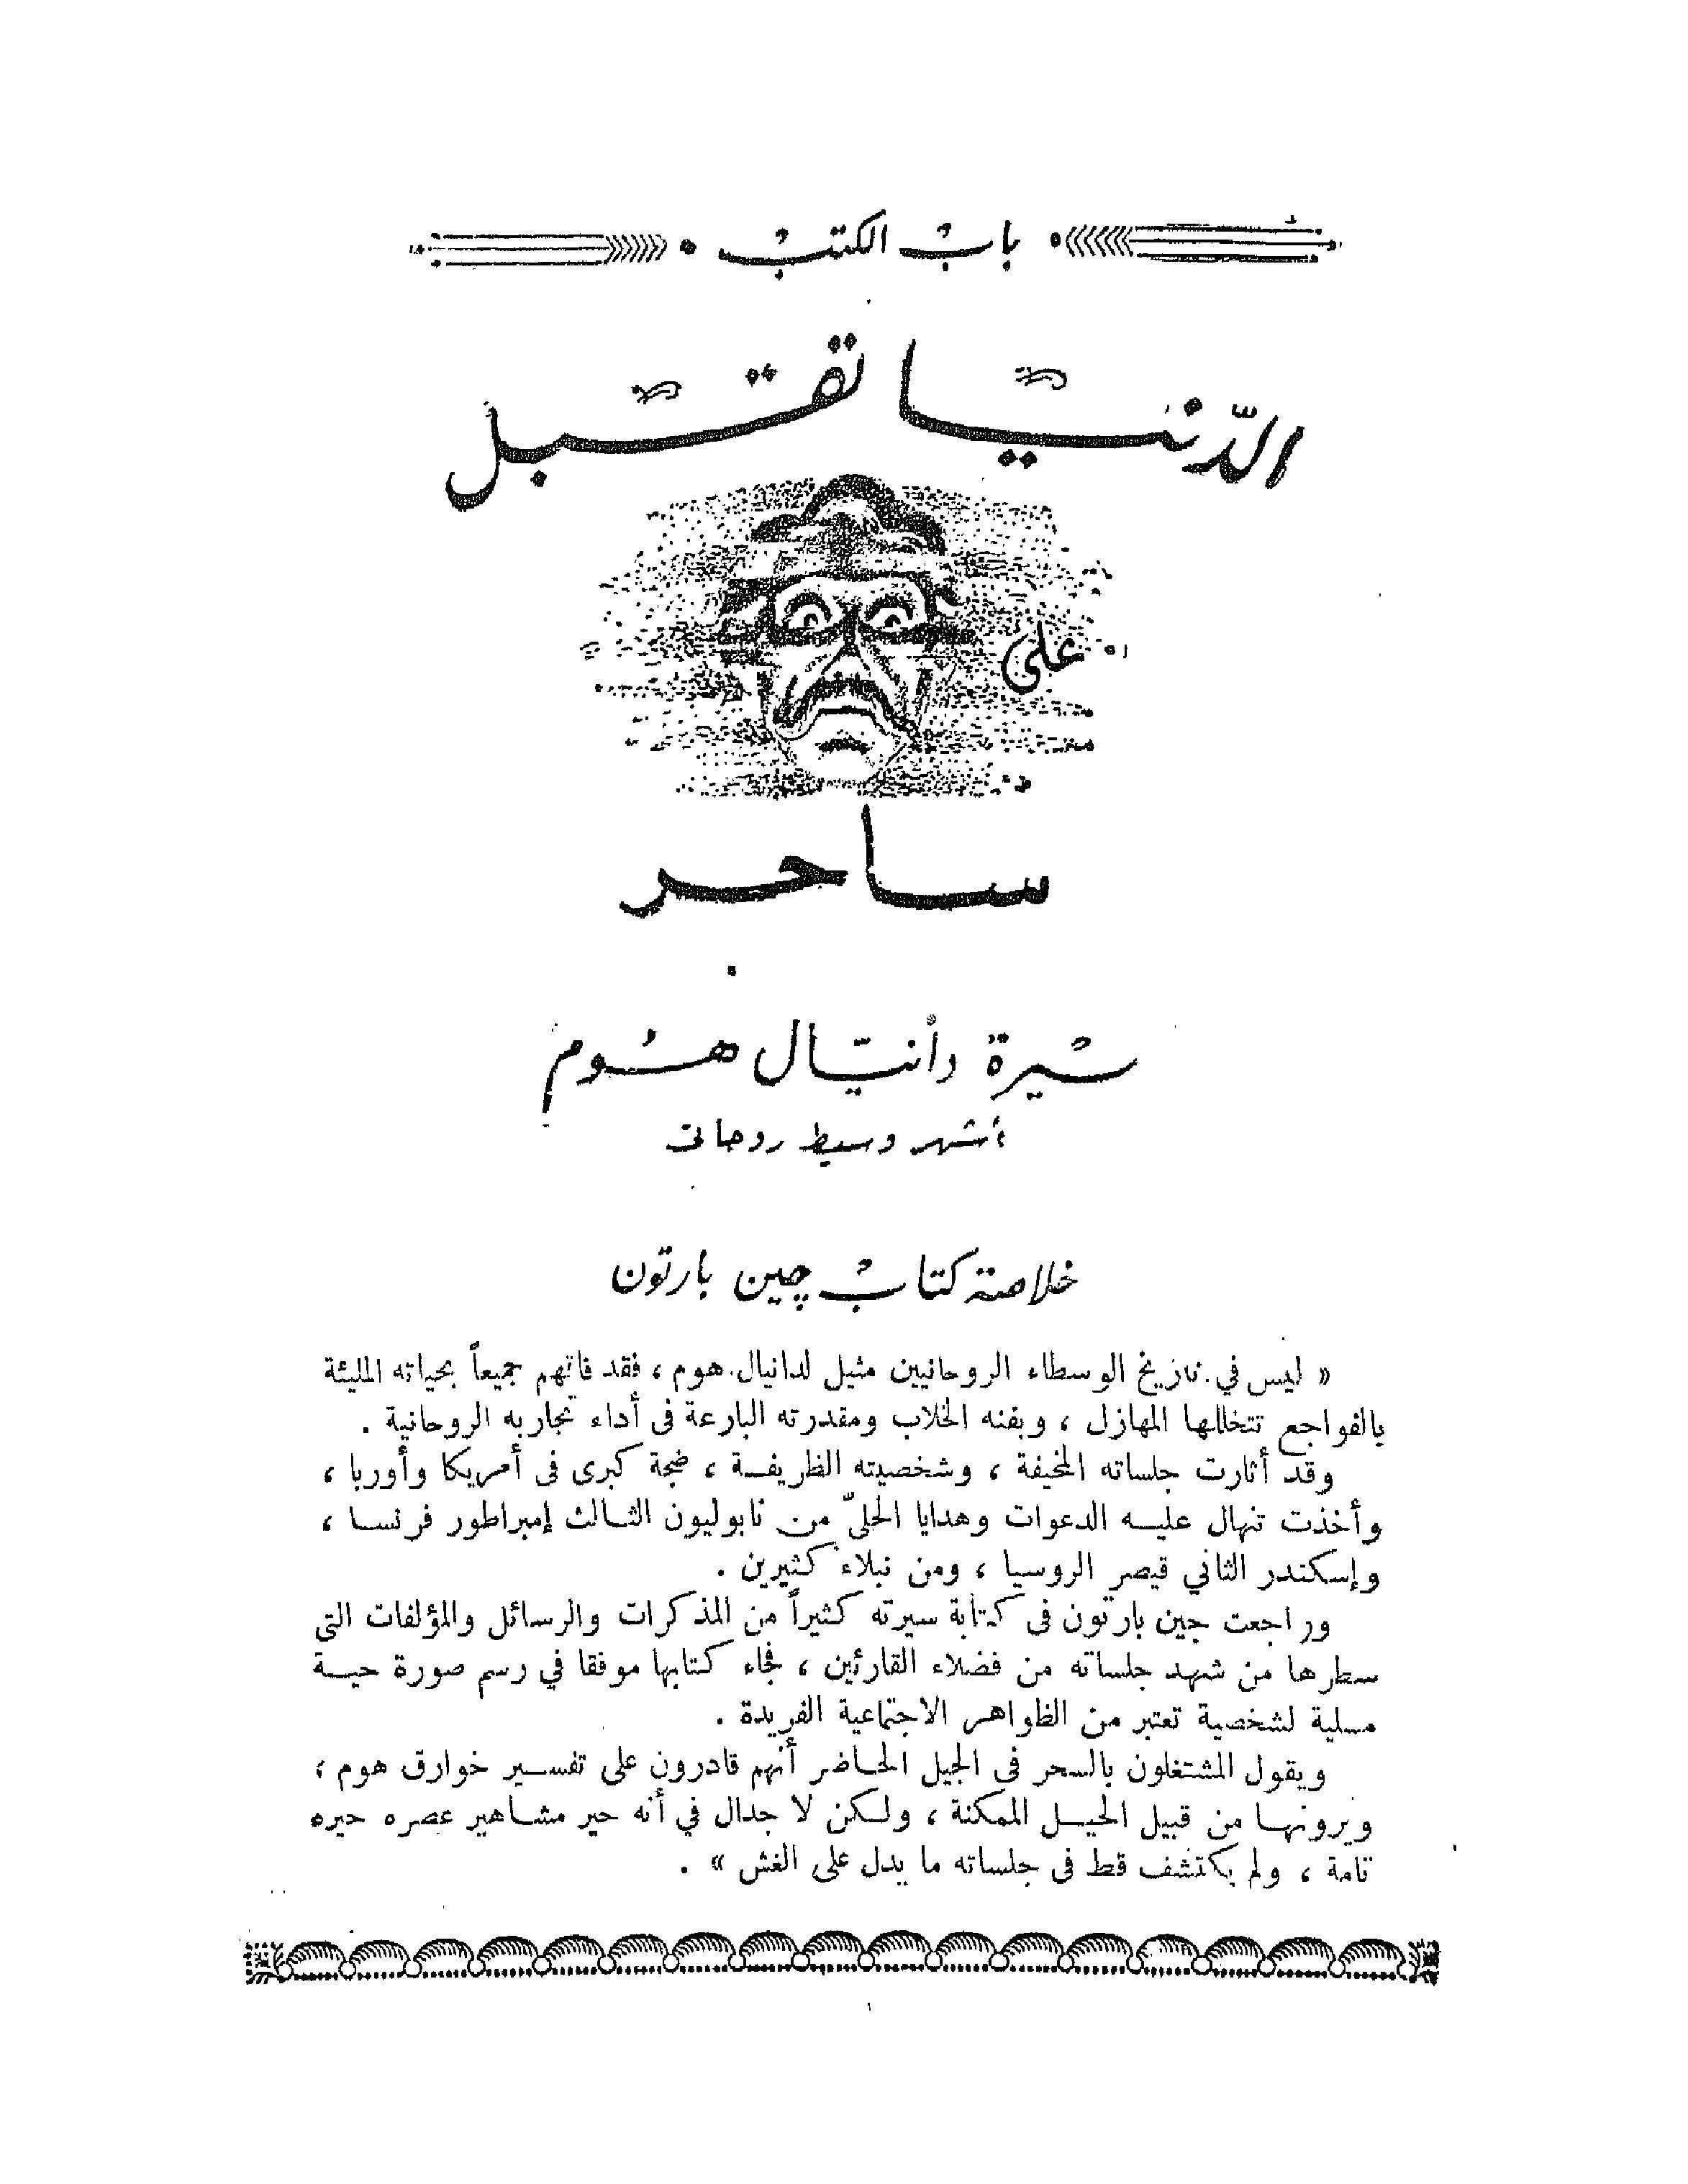 باب الكتب
الدّنيا تقبل
على
ساحر
سيرة دانيال هوم
أشهر وسيط روحانى
خلاصة كتاب چين بارتون
« ليس في تاريخ الوسطاء الروحانيين مثيل لدانيال هوم ، فقد فاتهم جميعاً بحياته المليئة
بالفواجع تتخللها المهازل ، وبفنه الخلاب ومقدرته البارعة فى أداء تجاربه الروحانية .
وقد أثارت جلساته المخيفة ، وشخصيته الظريفة ، ضجة كبرى فى أمريكا وأوربا ،
وأخذت تنهال عليه الدعوات وهدايا الحلىّ من نابوليون الثالث إمبراطور فرنسا ،
وإسكندر الثاني قيصر الروسيا ، ومن نبلاء كثيرين .
وراجعت جين بارتون فى كتابة سيرته كثيراً من المذكرات والرسائل والمؤلفات التى
سطرها من شهد جلساته من فضلاء القارئين ، فجاء كتابها موفقا في رسم صورة حية
مسلية لشخصية تعتبر من الظواهر الاجتماعية الفريدة .
ويقول المشتغلون بالسحر فى الجيل الحاضر أنهم قادرون على تفسير خوارق هوم ،
ويرونها من قبيل الحيل الممكنة ، ولكن لا جدال في أنه حير مشاهير عصره حيرة
تامة ، ولم يكتشف قط فى جلساته ما يدل على الغش » .